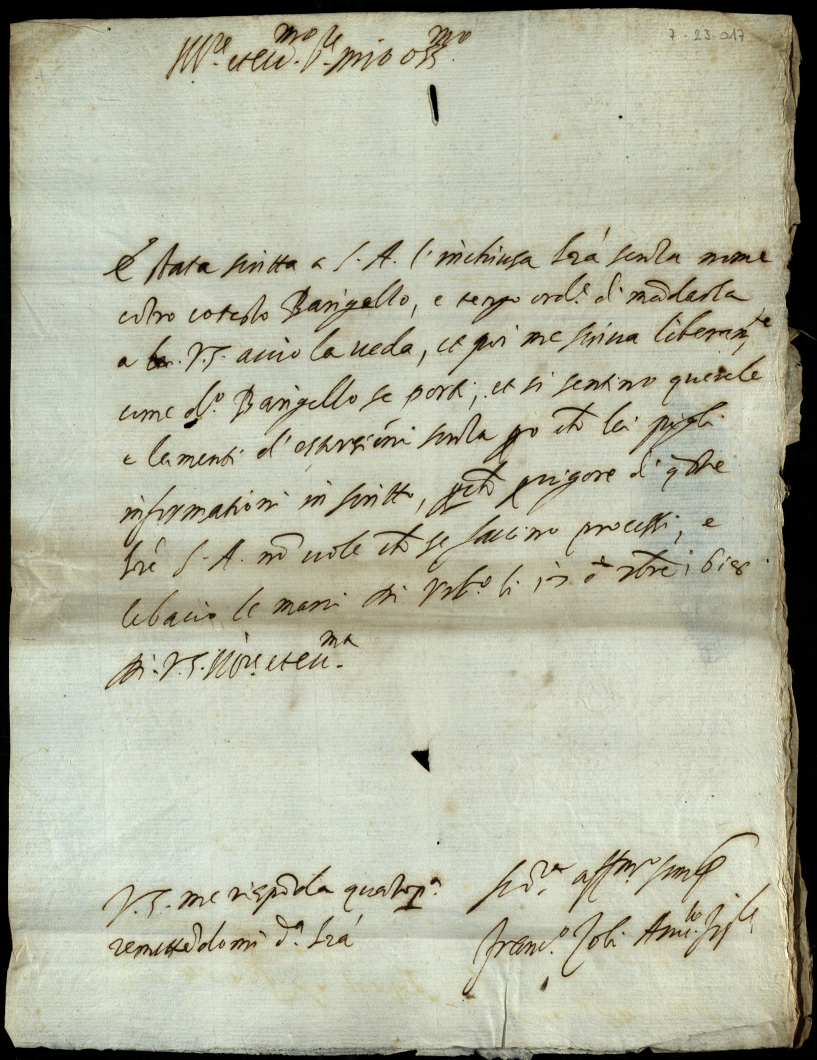 7-23-017
Ill.re et ecc.mo S.re mio oss.mo
È stata scritta a S. A. l'inchiusa lrã senza nome
cõtro cotesto Barigello, e tengo ord.e di mãdarla
a V.S. acciò la veda, et poi me scriva liberam.te
come d.o Barigello se porti, et si sentino querele
e lamenti d'estorsioni senza però che lei pigli
informationi in scritto, perché p vigore di q.sta
lrã S. A. nõ vole che se faccino processi, e
le bacio le mani di Urb.o li
Di V.S. Ill.re et ecc.ma
V.S. me rispõda quanto p.a
remettẽdomi d.a lrã
ser.re aff.mo sempre
Franc.o